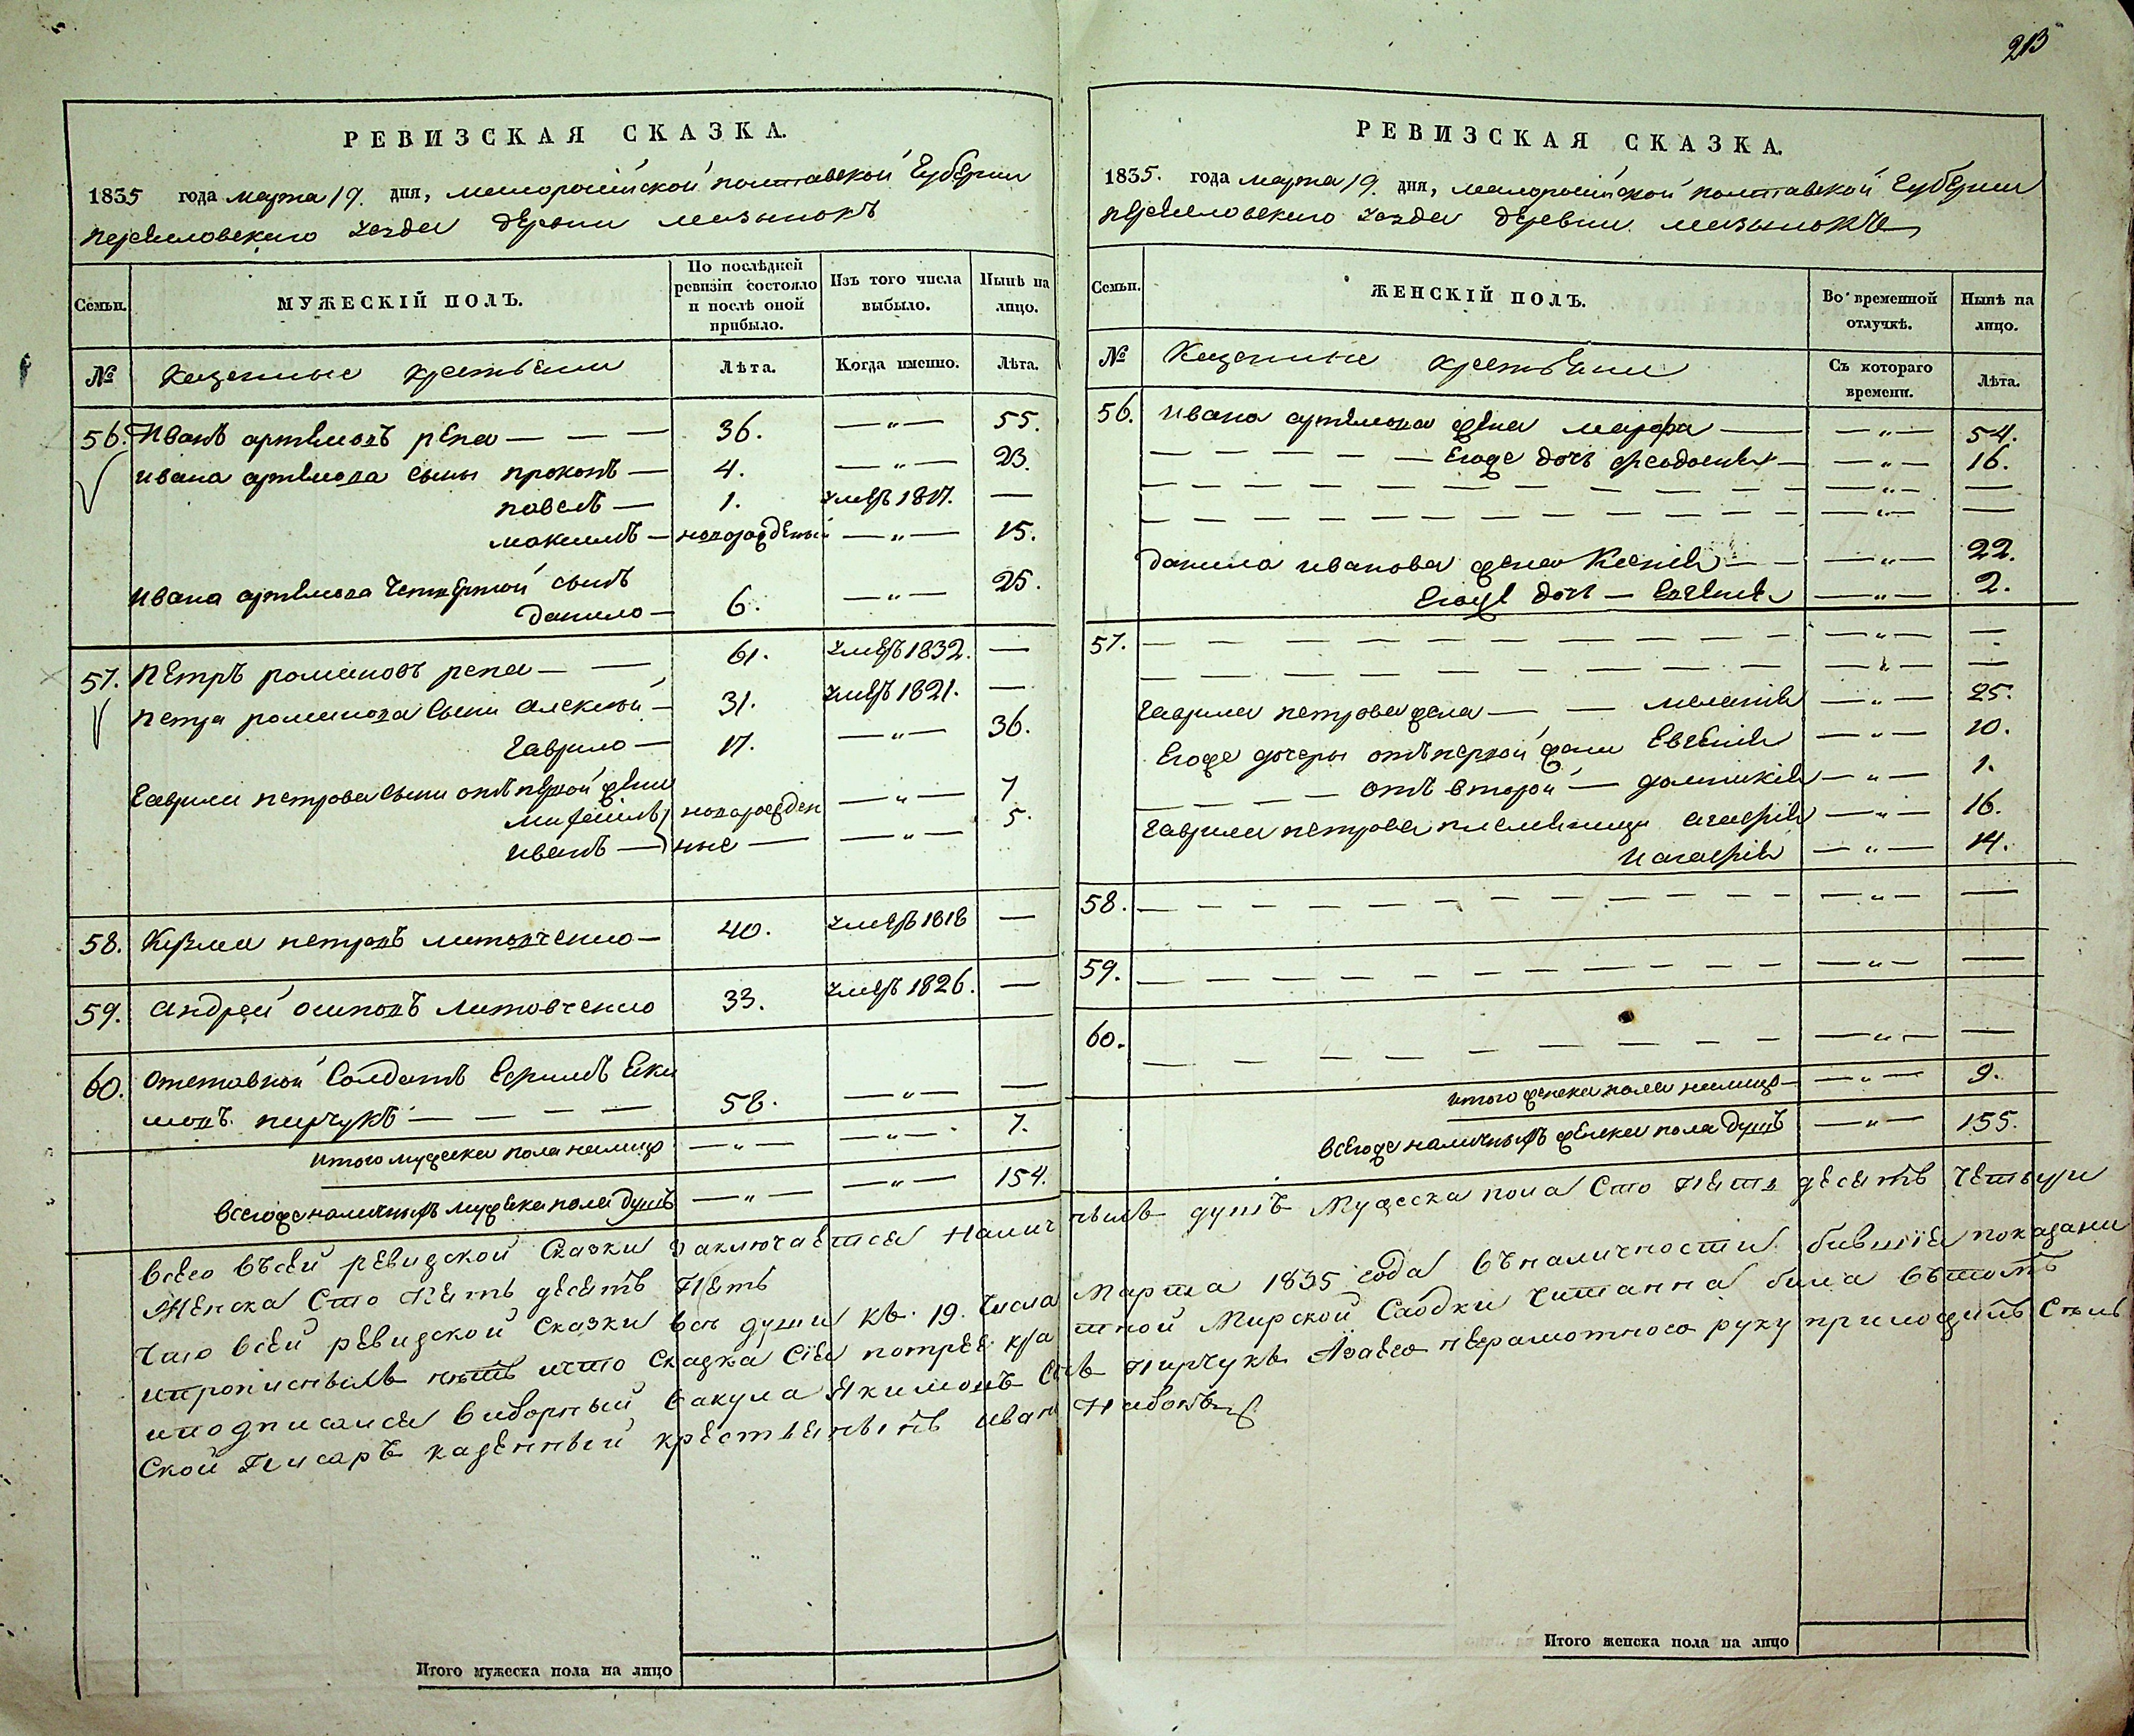 213
РЕВИЗСКАЯ СКАЗКА.
1835 года марта 19. дня, малоросійской полтавской Губерніи
переяславского уезда деревни мазынокъ
Семьи. МУЖЕСКІЙ ПОЛЪ. По послѣдней ревизіи состояло и послѣ оной прибыло. Изъ того числа выбыло. Нынѣ на лицо.
№ Казенные крестьяни Лѣта. Когда именно. Лѣта.
56. Иванъ артемовъ репа — — — 36. —„— 55.
ивана артемова сыны прокопъ — 4. —„— 23.
павелъ — 1. умеръ 1817. —
максимъ — новорожденый —„— 15.
ивана артемова Четвертой сынъ
данило — 6. —„— 25.
57. Петръ романовъ репа — — 61. умеръ 1832. —
петра романова сыни алексей — 31. умеръ 1821. —
гаврило — 17. —„— 36.
гаврили петрова сыни отъ первой жени
михаилъ новорожден —„— 7
иванъ — ные — —„— 5.
58. Кузма петровъ литовченко — 40. умеръ 1818 —
59. андрей осиповъ литовченко 33. умеръ 1826. —
60. отставной Солдатъ Ефримъ Еки
мовъ пирчукъ — — — — 58. —„— —
итого мужеска пола налицо —„— —„— 7.
всегоже наличныхъ мужеска пола душъ —„— —„— 154.
РЕВИЗСКАЯ СКАЗКА.
1835. года марта 19. дня, малоросійской полтавской Губерніи
переяславского уезда деревни мазынокъ
Семьи. ЖЕНСКІЙ ПОЛЪ. Во временной отлучкѣ. Нынѣ на лицо.
№ Казенные крестьяни Съ котораго времени. Лѣта.
56. ивана артемова жена марфа — —„— 54.
— — — — — Егоже дочь феодосия — —„— 16.
— — — — — — — — — —„— —
— — — — — — — — — —„— —
данила иванова жена Ксенія — — —„— 22.
Егоже дочь — Евгенія —„— 2.
57. — — — — — — — — — —„— —
— — — — — — — — —„— —
гаврила петрова жена — — меланія —„— 25.
Егоже дочеры отъ первой жени Евгенія —„— 10.
— — — — отъ второй — домникія —„— 1.
гаврила петрова племянници агафія —„— 16.
и агафія —„— 14.
58. — — — — — — — — — —„— —
59. — — — — — — — — — —„— —
60. — — — — — — — — —„— —
итого женска пола налицо —„— 9.
всегоже наличныхъ женска пола душъ —„— 155.
всего въсей ревизской Сказки заключается Налич ныхъ душъ Мужеска пола Сто Пять десятъ Четыри
Женска Сто Пять десятъ Пять
Что всей ревизской Сказки вси души къ. 19. Числа Марта 1835 года въналичности бившіе показани
ипрописныхъ нетъ ичто Сказка Сія потрех кра тной Мирской Сходки Читанна била вътомъ
иподписался виборный вакула Якимовъ Снъ Пирчукъ Аваего неграмотного руку приложилъ Сель
Ской Писаръ казенный крестьянинъ иванъ Нибокъ
Итого мужеска пола на лицо
Итого женска пола на лицо